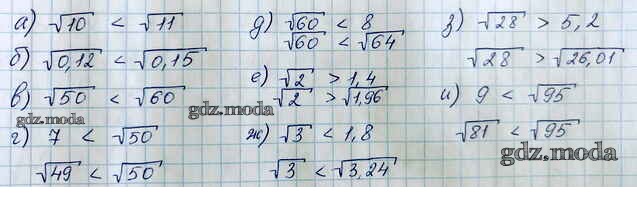 а) √10 < √11
б) √0,12 < √0,15
в) √50 < √60
г) 7 < √50
√49 < √50
д) √60 < 8
√60 < √64
е) √2 > 1,4
√2 > √1,96
ж) √3 < 1,8
√3 < √3,24
з) √28 > 5,2
√28 > √26,01
и) 9 < √95
√81 < √95
gdz.moda
gdz.moda
gdz.moda